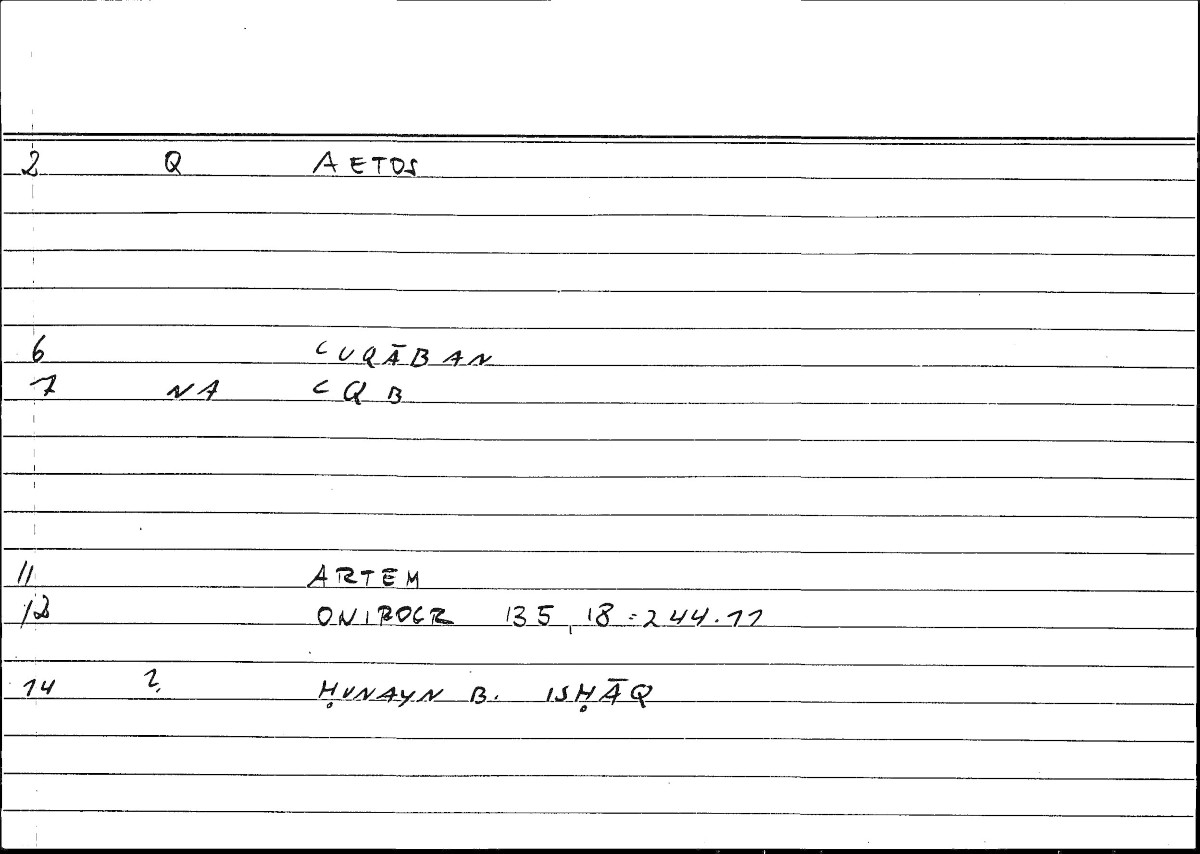 2 Q AETOS
6 ʿUQĀBAN
7 NA ʿQB
11 ARTEM
12 ONIROCR 135,18=244.11
14 ? ḤUNAYN B. ISḤĀQ